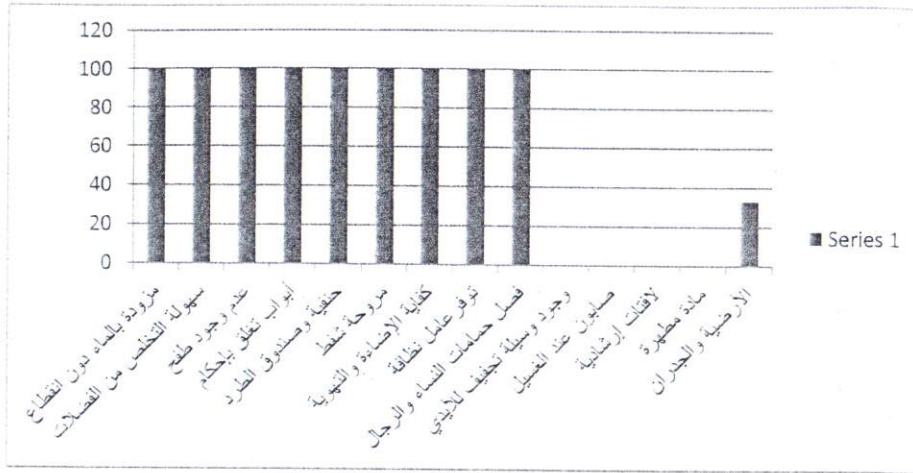 120
100
80
60
40
20
0
مزودة بالماء دون انقطاع
سهولة التخلص من الفضلات
عدم وجود طفح
أبواب تغلق بإحكام
حنفية وصندوق الطرد
مروحة شفط
كفاية الإضاءة والتهوية
توفر عامل نظافة
فصل حمامات النساء والرجال
وجود وسيلة تجفيف للأيدي
صابون عند الغسيل
لافتات إرشادية
مادة مطهرة
الأرضية والجدران
Series 1